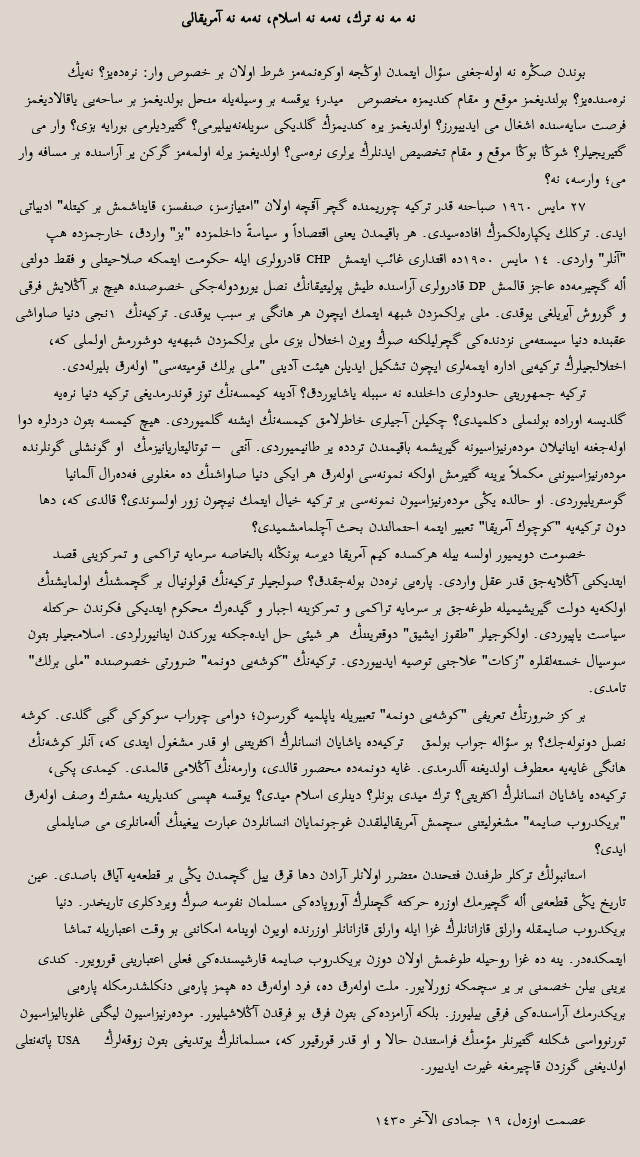 نه مه نه ترك، نه‌مه نه اسلام، نه‌مه نه آمریقالی
بوندن صڭره نه اوله‌جغنی سؤال ایتمدن اوڭجه اوكره‌نمه‌مز شرط اولان بر خصوص وار: نره‌ده‌یز؟ نه‌یڭ
نره‌سنده‌یز؟ بولندیغمز موقع و مقام كندیمزه مخصوص میدر؛ یوقسه بر وسیله‌یله منحل بولدیغمز بر ساحه‌یی یاقالادیغمز
فرصت سایه‌سنده اشغال می ایدییورز؟ اولدیغمز یره كندیمزڭ گلدیكی سویله‌نه‌بیلیرمی؟ گتیردیلرمی بورایه بزی؟ وار می
گتیریجیلر؟ شوڭا بوڭا موقع و مقام تخصیص ایدنلرڭ یرلری نره‌سی؟ اولدیغمز یرله اولمه‌مز گركن یر آراسنده بر مسافه وار
می؛ وارسه، نه؟
٢٧ مایس ١٩٦٠ صباحنه قدر تركیه چوریمنده گچر آقچه اولان "امتیازسز، صنفسز، قایناشمش بر كیتله" ادبیاتی
ایدی. تركلك یكپاره‌لكمزڭ افاده‌سیدی. هر باقیمدن یعنی اقتصاداً و سیاسةً داخلمزده "بز" واردق، خارجمزده هپ
"آنلر" واردی. ١٤ مایس ١٩٥٠ده اقتداری غائب ایتمش CHP قادرولری ایله حكومت ایتمكه صلاحیتلی و فقط دولتی
أله گچیرمه‌ده عاجز قالمش DP قادرولری آراسنده طیش پولیتیقانڭ نصل یورودوله‌جكی خصوصنده هیچ بر آڭلایش فرقی
و گوروش آیریلغی یوقدی. ملی برلكمزدن شبهه ایتمك ایچون هر هانگی بر سبب یوقدی. تركیه‌نڭ ١نجی دنیا صاواشی
عقبنده دنیا سیسته‌می نزدنده‌كی گچرلیلكنه صوڭ ویرن اختلال بزی ملی برلكمزدن شبهه‌یه دوشورمش اولملی كه،
اختلالجیلرڭ تركیه‌یی اداره ایتمه‌لری ایچون تشكیل ایدیلن هیئت آدینی "ملی برلك قومیته‌سی" اوله‌رق بلیرله‌دی.
تركیه جمهوریتی حدودلری داخلنده نه سببله یاشایوردق؟ آدینه كیمسه‌نڭ توز قوندرمدیغی تركیه دنیا نره‌یه
گلدیسه اوراده بولنملی دكلمیدی؟ چكیلن آجیلری خاطرلامق كیمسه‌نڭ ایشنه گلمیوردی. هیچ كیمسه بتون دردلره دوا
اوله‌جغنه اینانیلان موده‌رنیزاسیونه گیریشمه باقیمندن تردده یر طانیمیوردی. آنتی – توتالیتاریانیزمڭ او گونشلی گونلرنده
موده‌رنیزاسیوننی مكملاً یرینه گتیرمش اولكه نمونه‌سی اوله‌رق هر ایكی دنیا صاواشنڭ ده مغلوبی فه‌ده‌رال آلمانیا
گوستریلیوردی. او حالده یڭی موده‌رنیزاسیون نمونه‌سی بر تركیه خیال ایتمك نیچون زور اولسوندی؟ قالدی كه، دها
دون تركیه‌یه "كوچوك آمریقا" تعبیر ایتمه احتمالندن بحث آچلمامشمیدی؟
خصومت دویمیور اولسه بیله هركسده كیم آمریقا دیرسه بونڭله بالخاصه سرمایه تراكمی و تمركزینی قصد
ایتدیكنی آڭلایه‌جق قدر عقل واردی. پاره‌یی نره‌دن بوله‌جقدق؟ صولجیلر تركیه‌نڭ قولونیال بر گچمشنڭ اولمایشنڭ
اولكه‌یه دولت گیریشیمیله طوغه‌جق بر سرمایه تراكمی و تمركزینه اجبار و گیده‌رك محكوم ایتدیكی فكرندن حركتله
سیاست یاپیوردی. اولكوجیلر "طقوز ایشیق" دوقتریننڭ هر شیئی حل ایده‌جكنه یوركدن اینانیورلردی. اسلامجیلر بتون
سوسیال خسته‌لقلره "زكات" علاجنی توصیه ایدییوردی. تركیه‌نڭ "كوشه‌یی دونمه" ضرورتی خصوصنده "ملی برلك"
تامدی.
بر كز ضرورتڭ تعریفی "كوشه‌یی دونمه" تعبیریله یاپلمیه گورسون؛ دوامی چوراب سوكوكی گبی گلدی. كوشه
نصل دونوله‌جك؟ بو سؤاله جواب بولمق تركیه‌ده یاشایان انسانلرڭ اكثریتنی او قدر مشغول ایتدی كه، آنلر كوشه‌نڭ
هانگی غایه‌یه معطوف اولدیغنه آلدرمدی. غایه دونمه‌ده محصور قالدی، وارمه‌نڭ آڭلامی قالمدی. كیمدی پكی،
تركیه‌ده یاشایان انسانلرڭ اكثریتی؟ ترك میدی بونلر؟ دینلری اسلام میدی؟ یوقسه هپسی كندیلرینه مشترك وصف اوله‌رق
"بریكدروب صایمه" مشغولیتنی سچمش آمریقالیلقدن غوجونمایان انسانلردن عبارت ییغینڭ أله‌مانلری می صایلملی
ایدی؟
استانبولڭ تركلر طرفندن فتحندن متضرر اولانلر آرادن دها قرق ییل گچمدن یڭی بر قطعه‌یه آیاق باصدی. عین
تاریخ یڭی قطعه‌یی أله گچیرمك اوزره حركته گچنلرڭ آوروپاده‌كی مسلمان نفوسه صوڭ ویردكلری تاریخدر. دنیا
بریكدروب صایمقله وارلق قازانانلرڭ غزا ایله وارلق قازانانلر اوزرنده اویون اوینامه امكاننی بو وقت اعتباریله تماشا
ایتمكده‌در. ینه ده غزا روحیله طوغمش اولان دوزن بریكدروب صایمه قارشیسنده‌كی فعلی اعتبارینی قورویور. كندی
یرینی بیلن خصمنی بر یر سچمكه زورلایور. ملت اوله‌رق ده، فرد اوله‌رق ده هپمز پاره‌یی دنكلشدرمكله پاره‌یی
بریكدرمك آراسنده‌كی فرقی بیلیورز. بلكه آرامزده‌كی بتون فرق بو فرقدن آڭلاشیلیور. موده‌رنیزاسیون لیگنی غلوبالیزاسیون
تورنوواسی شكلنه گتیرنلر مؤمنڭ فراستندن حالا و او قدر قورقیور كه، مسلمانلرڭ یوتدیغی بتون زوقه‌لرڭ USA پاته‌نتلی
اولدیغنی گوزدن قاچیرمغه غیرت ایدییور.
عصمت اوزه‌ل، ١٩ جمادی الآخر ١٤٣٥